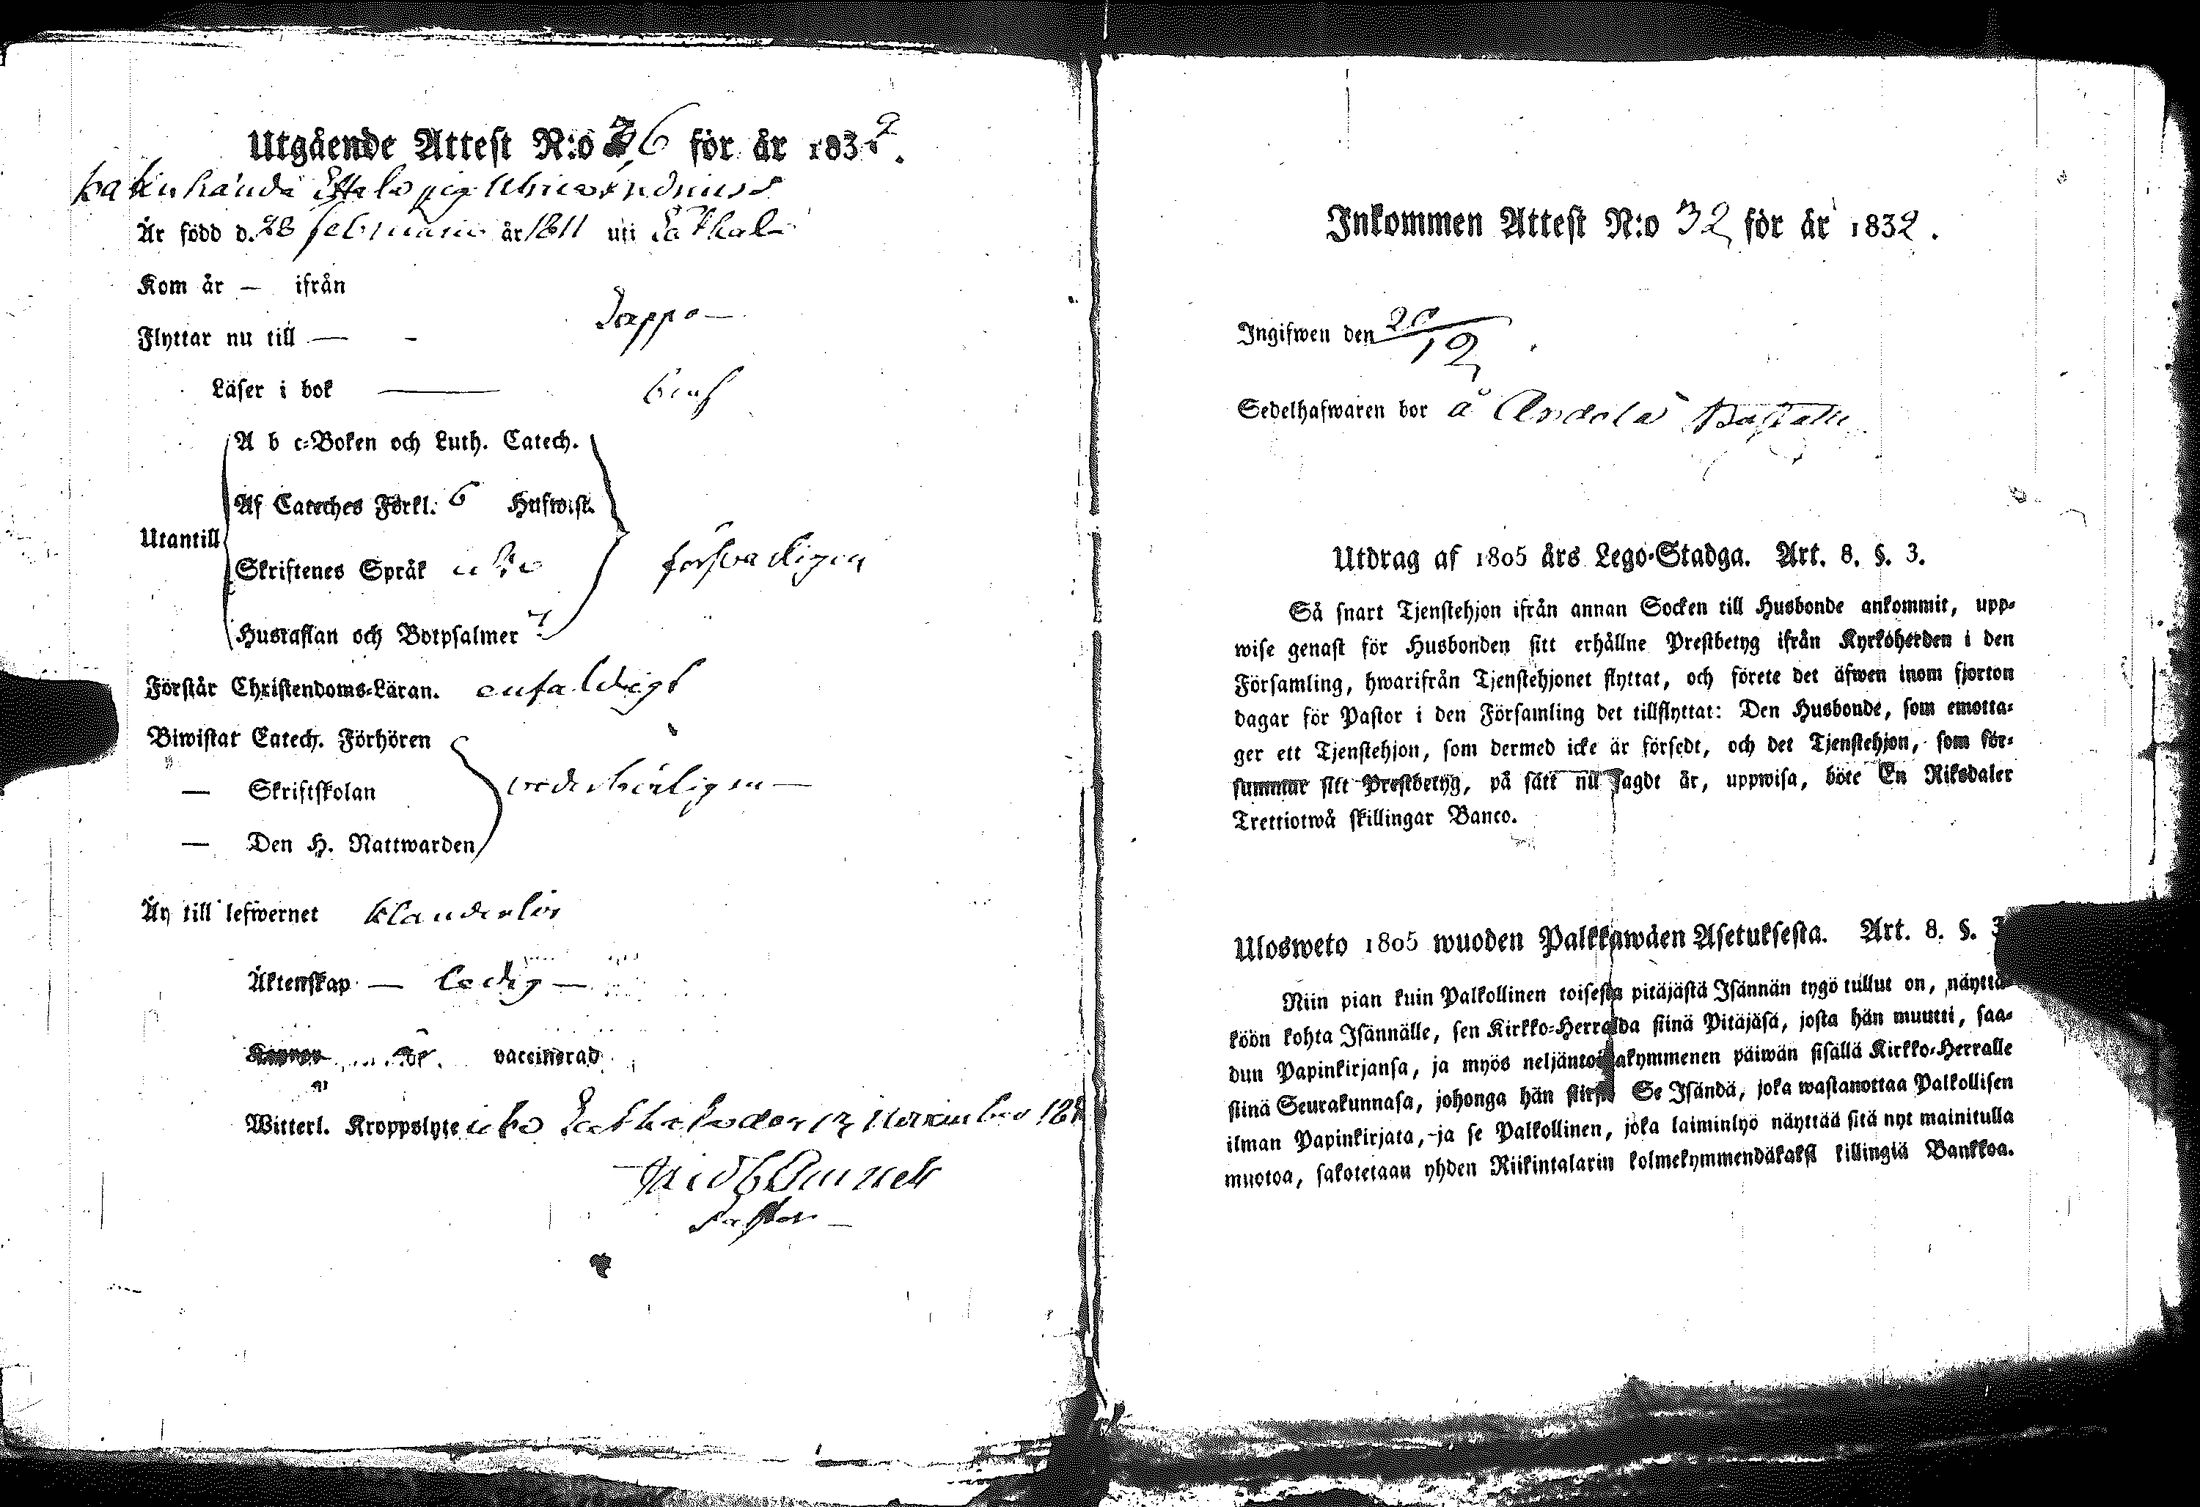 Utgående Attest N:o 36 för år 1832.
Är född d. 28 februarii år 1811 uti
Kom år — ifrån
Flyttar nu till — -
Läser i bok —
A b c-Boken och Luth. Catech.
Af Cateches Förkl. 6 Husw.st.
Utantill
Skriftenes Språk icke försvarligen
Hustaflan och Botpsalmer
Förstår Christendoms-Läran. enfaldigt
Biwistat Catech. Förhören
— Skriftskolan wederbörligen —
— Den H. Nattwarden
Än till lefwernet klanderlös
Äktenskap — ledig —
Koppor är vaccinerad
Witterl. Kroppslyte icke den 13 November
Pastor —
Inkommen Attest N:o 32 för år 1832.
Ingifwen den 20/12
Sedelhafwaren bor å
Utdrag af 1805 års Lego-Stadga. Art. 8. §. 3.
Så snart Tjenstehjon ifrån annan Socken till Husbonde ankommit, upp-
wise genast för Husbonden sitt erhållne Prestbetyg ifrån Kyrkoherden i den
Församling, hwarifrån Tjenstehjonet flyttat, och förete det äfwen inom fjorton
dagar för Pastor i den Församling det tillflyttat: Den Husbonde, som emotta-
ger ett Tjenstehjon, som dermed icke är försedt, och det Tjenstehjon, som för-
summar sitt Prestbetyg, på sätt nu sagdt är, uppwisa, böte En Riksdaler
Trettiotwå skillingar Banco.
Ulosweto 1805 wuoden Palkkawäen Asetuksesta. Art. 8. §. 3
Niin pian kuin Palkollinen toisesta pitäjästä Isännän tygö tullut on, näyttä-
köön kohta Isännälle, sen Kirkko-Herralda siinä Pitäjäsä, josta hän muutti, saa-
dun Papinkirjansa, ja myös neljäntoistakymmenen päiwän sisällä Kirkko-Herralle
siinä Seurakunnasa, johonga hän siirsi. Se Isändä, joka wastanottaa Palkollisen
ilman Papinkirjata, ja se Palkollinen, joka laiminlyö näyttää sitä nyt mainitulla
muotoa, sakotetaan yhden Riikintalarin kolmekymmendäkaksi killingiä Bankkoa.